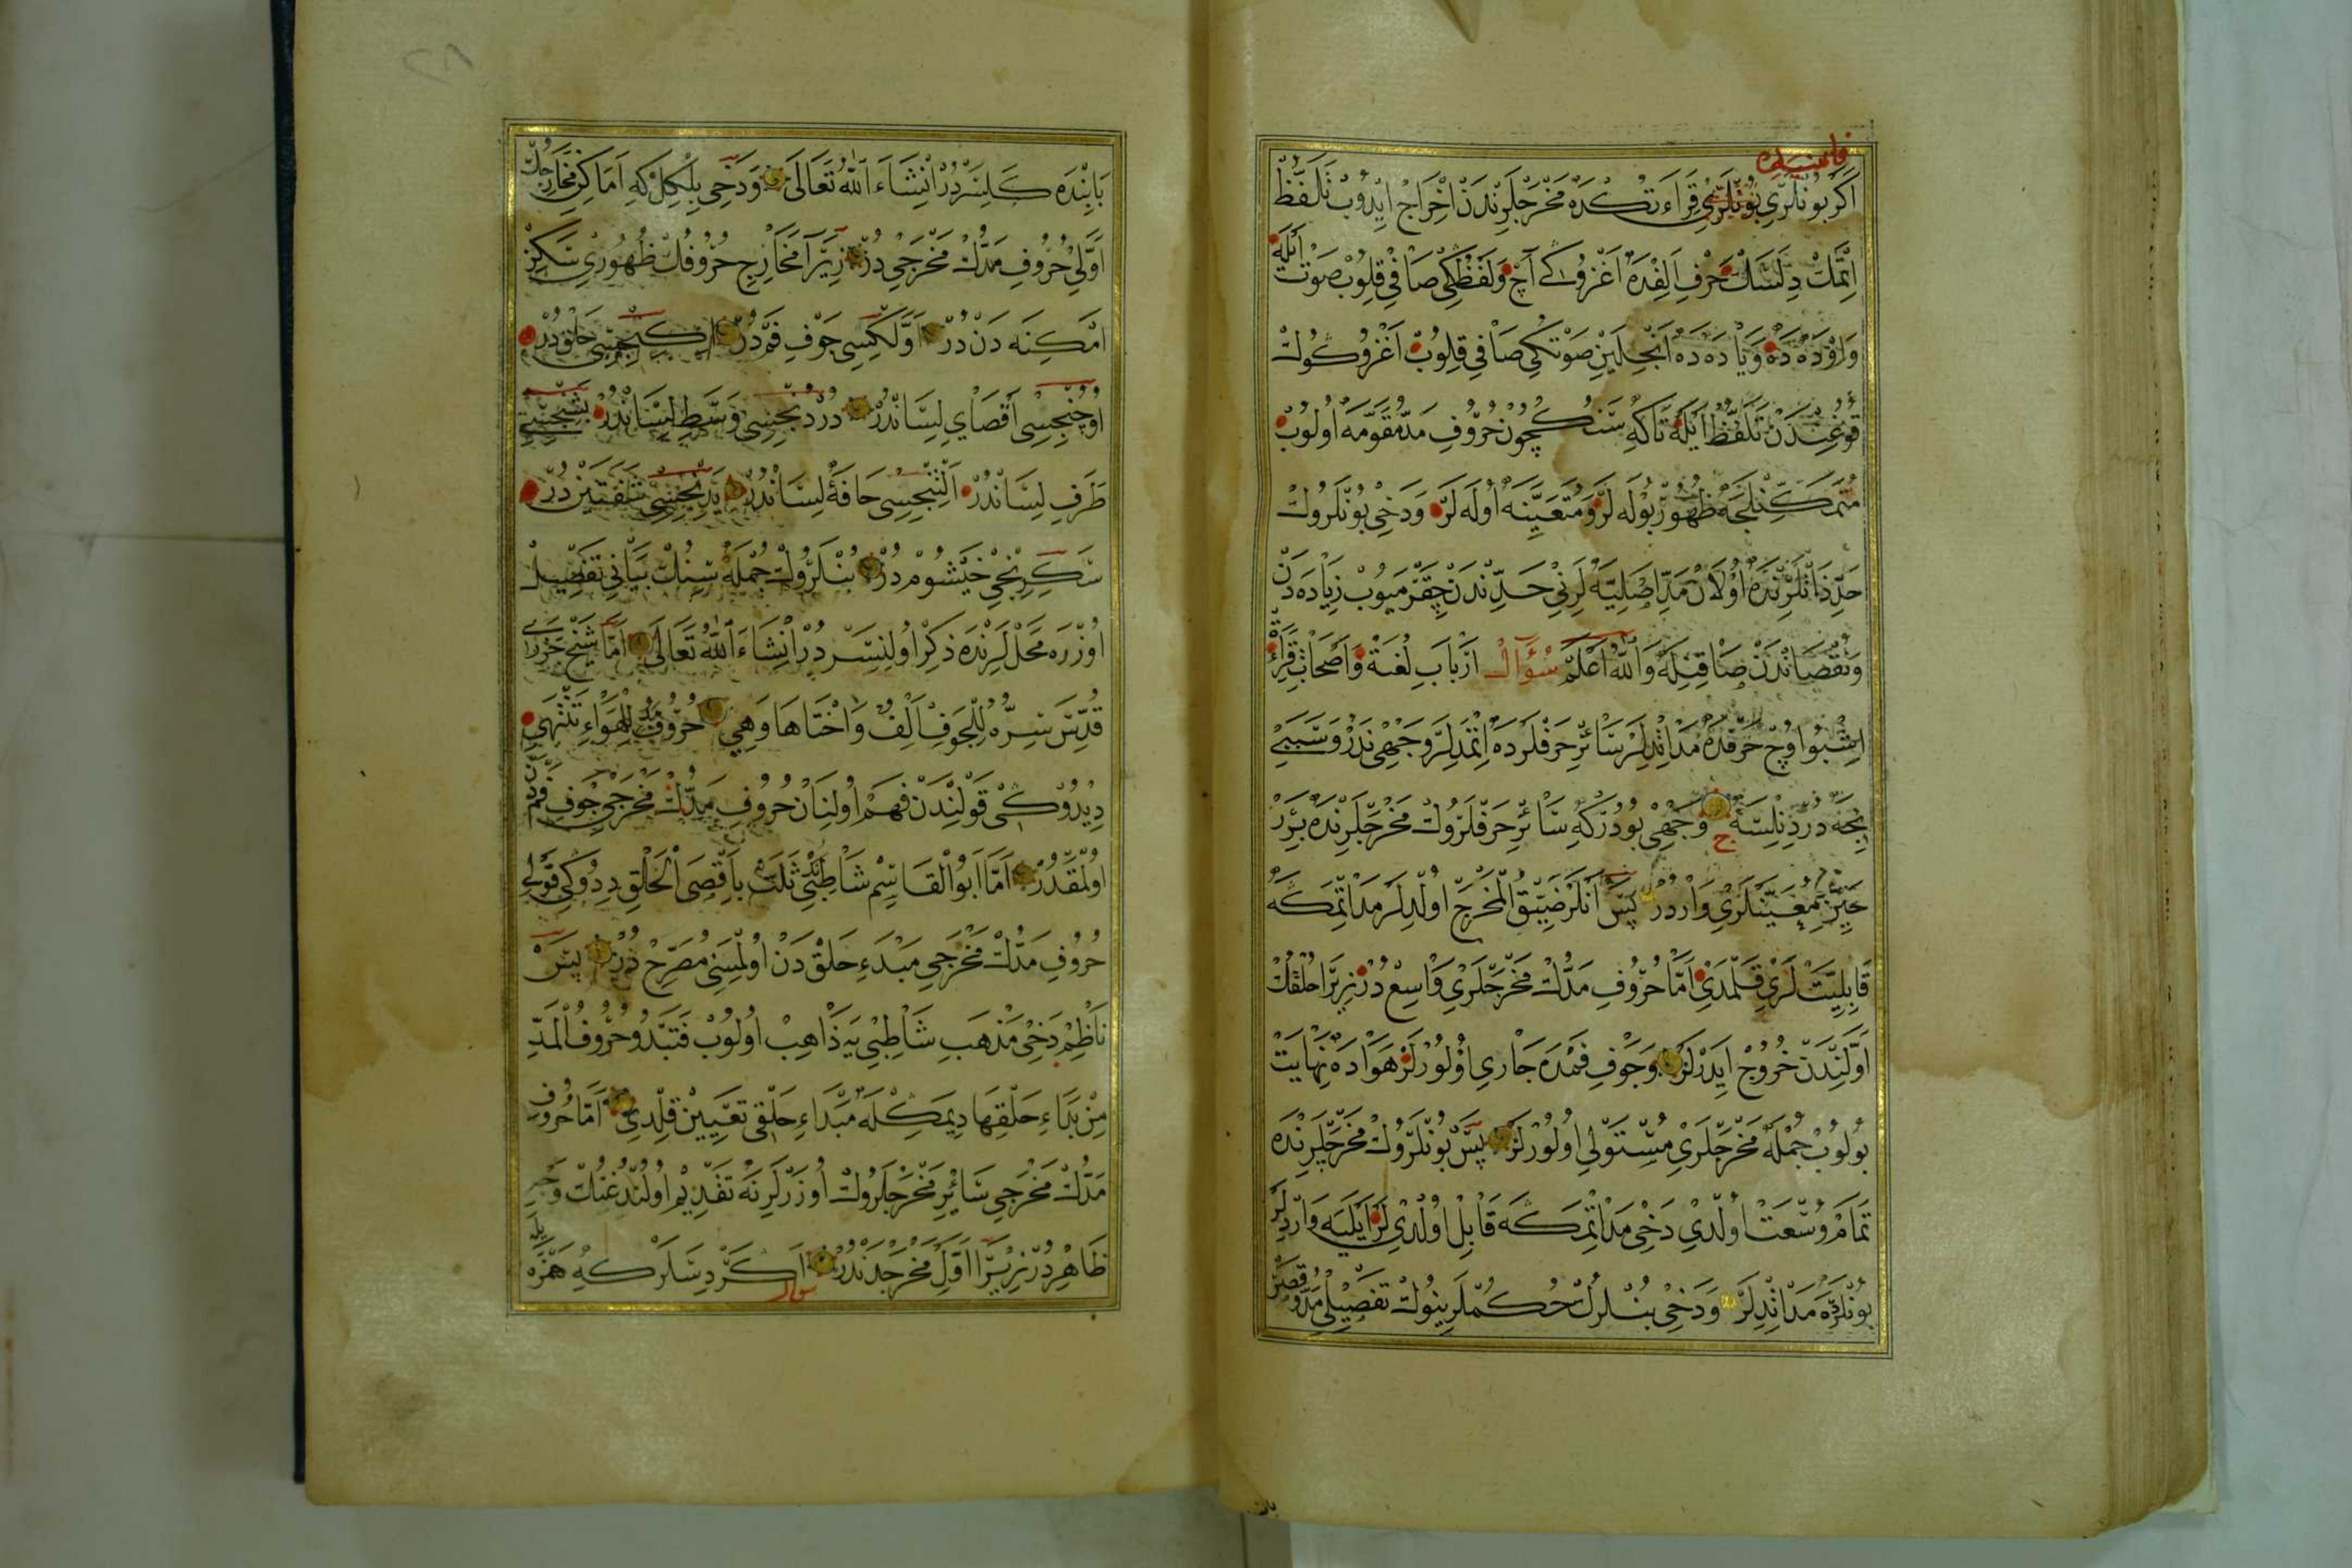 فائتنسه
اَكَرْ بُونْلَرِي بُونْلَرِي قِرَاءَتْكَدَه مَخْرَجْلَرِنْدَنْ اِخْرَاجْ اِيدُوبْ تَلَفُّظْ
اِتْمَكْ دِلَسَكْ حَرْفِ اَلِفْدَه اَغْزُوكِي آچْ وَلَفْظِكِي صَافِي قِلُوبْ صَوْتْ اَيْلَه
وَاوْدَه دَه وَيَا دَه دَه اَنْجِلَيِنْ صَوْتِكِي صَافِي قِلُوبْ اَغْزُوكُوكْ
قُوغُنِدَنْ تَلَفُّظْ اَيْلَه تَاكَه سَنُكْ كُچُونْ حُرُوفِ مَدْ مُقَوَّمَه اُولُوبْ
مُتَمَكِّنْلَجَه ظُهُورْ بُولَه لَرْ وَمُتَعَيِّنَه اُولَه لَرْ وَدَخِي بُونْلَرُوكْ
حَدِّ ذَاتْلَرِنْدَه اُولَانْ مَدِّ اَصْلِيَّه لَرِنِي حَدِّنْدَنْ چِقَرْمَيُوبْ زِيَادَه دَنْ
وَنُقْصَانْدَنْ صَاقِنِلَه وَاللهُ اَعْلَمْ سُؤَالْ اَرْبَابِ لُغَتْ وَاَصْحَابِ قِرَاءَتْ
اِشْبُو اُوچْ حَرْفْدَه مَدْ اِتْدِلَرْ سَائِرِ حَرْفْلَرْدَه اِتْمَدِلَرْ وَجْهِي نَدُرْ وَسَبَبِي
نِجَه دُرْ دِنِلِسَه ج وَجْهِي بُودُرْكَه سَائِرِ حَرْفْلَرُوكْ مَخْرَجْلَرِنْدَه بِرَرْ
حَيِّزِ مُعَيَّنْلَرِي وَارْدُرْ پَسْ اَنْلَرْ ضَيِّقُ الْمَخْرَجْ اُولْدِلَرْ مَدْ اِتْمَكَه
قَابِلِيَّتْ لَرِي قَلْمَدِي اَمَّا حُرُوفِ مَدُّكْ مَخْرَجْلَرِي وَاسِعْ دُرْ زِيرَا حَلْقُكْ
اَوَّلِنْدَنْ خُرُوجْ اِيدَرْلَرْ وَجَوْفِ فَمْدَه جَارِي اُولُورْلَرْ هَوَادَه نِهَايَتْ
بُولُوبْ جُمْلَه مَخْرَجْلَرِي مُسْتَوْلِي اُولُورْلَرْ پَسْ بُونْلَرُوكْ مَخْرَجْلَرِنْدَه
تَمَامْ وُسْعَتْ اُولْدِي دَخِي مَدْ اِتْمَكَه قَابِلْ اُولْدِي لَرْ اَيْلَيَه وَارْدِلَرْ
بُونْلَرَه مَدْ اِتْدِلَرْ وَدَخِي بُنْلَرُكْ حُكُمْلَرِينُوكْ تَفْصِيلِي مَدّ وقَصِرْ
بَابِنْدَه كَلِسَرْدُرْ اِنْشَاءَ اللهُ تَعَالَى وَدَخِي بِلْكِلْ كَه اَمَاكِنِ مَخَارِجُكْ
اَوَّلِي حُرُوفِ مَدُّكْ مَخْرَجِي دُرْ زِيرَا مَخَارِجِ حُرُوفُكْ ظُهُورِي سَكِزْ
اَمْكِنَه دَنْ دُرْ اَوَّلْكِيسِي جَوْفِ فَمْدُرْ اِكِنْجِيسِي حَلْقْ دُرْ
اُوچُنْجِيسِي اَقْصَايِ لِسَانْدُرْ دُرْدُنْجِيسِي وَسَطِ لِسَانْدُرْ بِشِنْجِيسِي
طَرَفِ لِسَانْدُرْ اَلْتِنْجِيسِي حَافَهٔ لِسَانْدُرْ يَدِنْجِيسِي شَفَتَيْنْ دُرْ
سَكِزِنْجِي خَيْشُومْ دُرْ بُنْلَرُوكْ جُمْلَه سِنُكْ بَيَانِي تَفْصِيلْ
اُوزْرَه مَحَلْلَرِنْدَه ذِكِرْ اُولِنِسَرْ دُرْ اِنْشَاءَ اللهُ تَعَالَى اَمَّا شَيْخْ جَزَرِي
قُدِّسَ سِرُّه لِلْجَوْفِ اَلِفٌ وَاُخْتَاهَا وَهِي حُرُوفُ مَدٍّ لِلْهَوَاءِ تَنْتَهِي
دِيدُوكِي قَوْلِنْدَنْ فَهِمْ اُولِنَانْ حُرُوفِ مَدُّكْ مَخْرَجِي جَوْفِ فَمْدَنْ
اُولْمَقْدُرْ اَمَّا اَبُو الْقَاسِمْ شَاطِبِي ثَلَثٌ بِاَقْصَى الْحَلْقِ دِدُوكِي قَوْلِي
حُرُوفِ مَدُّكْ مَخْرَجِي مَبْدَءِ حَلْقْ دَنْ اُولْمَسِنِي مُصَرِّحْ دُرْ پَسْ
نَاظِمْ دَخِي مَذْهَبِ شَاطِبِي يَه ذَاهِبْ اُولُوبْ فَتَبْدُو حُرُوفُ الْمَدِّ
مِنْ بَدَاءِ حَلْقِهَا دِيمَكِلَه مَبْدَاءِ حَلْقِي تَعْيِينْ قِلْدِي اَمَّا حُرُوفِ
مَدُّكْ مَخْرَجِي سَائِرِ مَخْرَجْلَرُوكْ اُوزَرْلَرِنَه تَقْدِيمْ اُولُنْدُغُنُكْ وَجْهِي
ظَاهِرْدُرْ زِيرَا اَوَّلِ مَخْرَجْدَنْدُرْ سؤال اَكَرْ دِسَلَرْكَه هَمْزَه يله